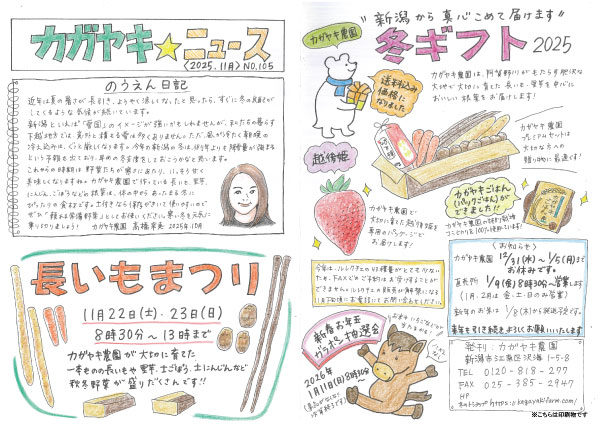 カガヤキ★ニュース
〈2025.11月〉NO.105
のうえん日記
近年は夏の暑さが長引き、ようやく涼しくなったと思ったら、すぐに冬の気配が
してくるような気候が続いています。
新潟といえば「雪国」のイメージが強いかもしれませんが、私たちの暮らす
下越地方では、意外と積もる雪は多くありません。ただ、風が冷たく朝晩の
冷え込みは、ぐっと厳しくなります。今年の新潟の冬は、例年よりも降雪量が増える
という予報も出ており、早めの冬支度をしておこうかなと思います。
これからの時期は野菜たちが寒さにあたり、じっくり甘く
美味しくなりますね。カガヤキ農園で作っている長いも、里芋、
にんじん、ごぼうなどの根菜は、体の中からあたたまる冬に
ぴったりの食材です。土付きなら保存がきいて使いやすいので
ぜひ「頼れる常備野菜」としてお使いください。寒い冬を元気に
乗り切りましょう! カガヤキ農園 高橋菜美 2025年10月
長いもまつり
11月22日(土)・23日(日)
8時30分〜13時まで
カガヤキ農園が大切に育てた
一本ものの長いもや里芋、土ごぼう、土にんじんなど
秋冬野菜が盛りだくさんです!!
"新潟から真心こめて届けます"
カガヤキ農園
冬ギフト2025
送料込み
価格に
なりました
カガヤキ農園は、阿賀野川がもたらす肥沃な
大地で大切に育てた長いも、里芋を中心に
おいしい根菜をお届けします!
カガヤキ農園
プレミアムセットは
大切な方への
贈り物に最適です!
越後姫
カガヤキ農園で
大切に育てた越後姫を
専用のパッケージで
お届けします!
カガヤキごはん
(パックごはん)が
できました!!
カガヤキ農園の特別栽培
コシヒカリを100%使用しています!
今年は、ルレクチェの収穫量がとても少ない
ため、FAXでのご予約はお受けすることが
できません。ルレクチェの販売が解禁になる
11月下旬頃にお電話にてお問い合わせください。
〈お知らせ〉
カガヤキ農園 12/31(水)〜1/5(月)まで
お休みです。
直売所 1/9(金)8時30分〜営業します
(1月、2月は金・土・日のみ営業)
新年のお米は1/8(木)から発送予定です。
来年も引き続きよろしくお願いいたします
新春お年玉
ガラポン抽選会
2026年
1月11日(日)8時30分〜
発刊:カガヤキ農園
新潟市江南区沢海1-5-8
TEL 0120-818-277
FAX 025-385-2947
HP
ネットショップ https://kagayakifarm.com/
※こちらは印刷物です